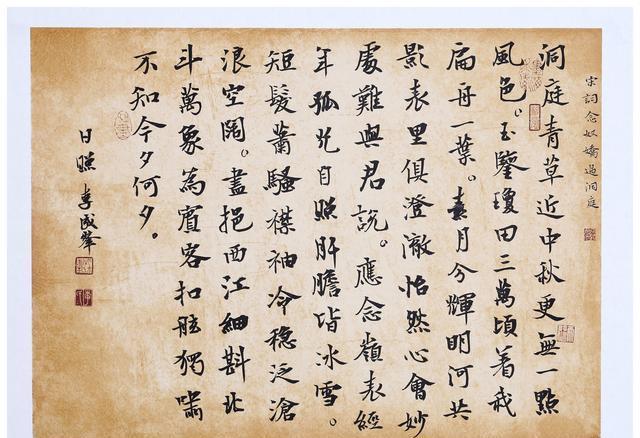 宋詞念奴嬌過洞庭
洞庭青草近中秋更無一點
風色。玉鑒瓊田三萬頃着我
扁舟一葉。素月分輝明河共
影表里俱澄澈怡然心會妙
處難與君說。應念嶺表經
年孤光自照肝膽皆冰雪。
短髮蕭騷襟袖冷穩泛滄
浪空闊。盡挹西江細斟北
斗萬象為賓客扣舷獨嘯
不知今夕何夕。
日照李成峯